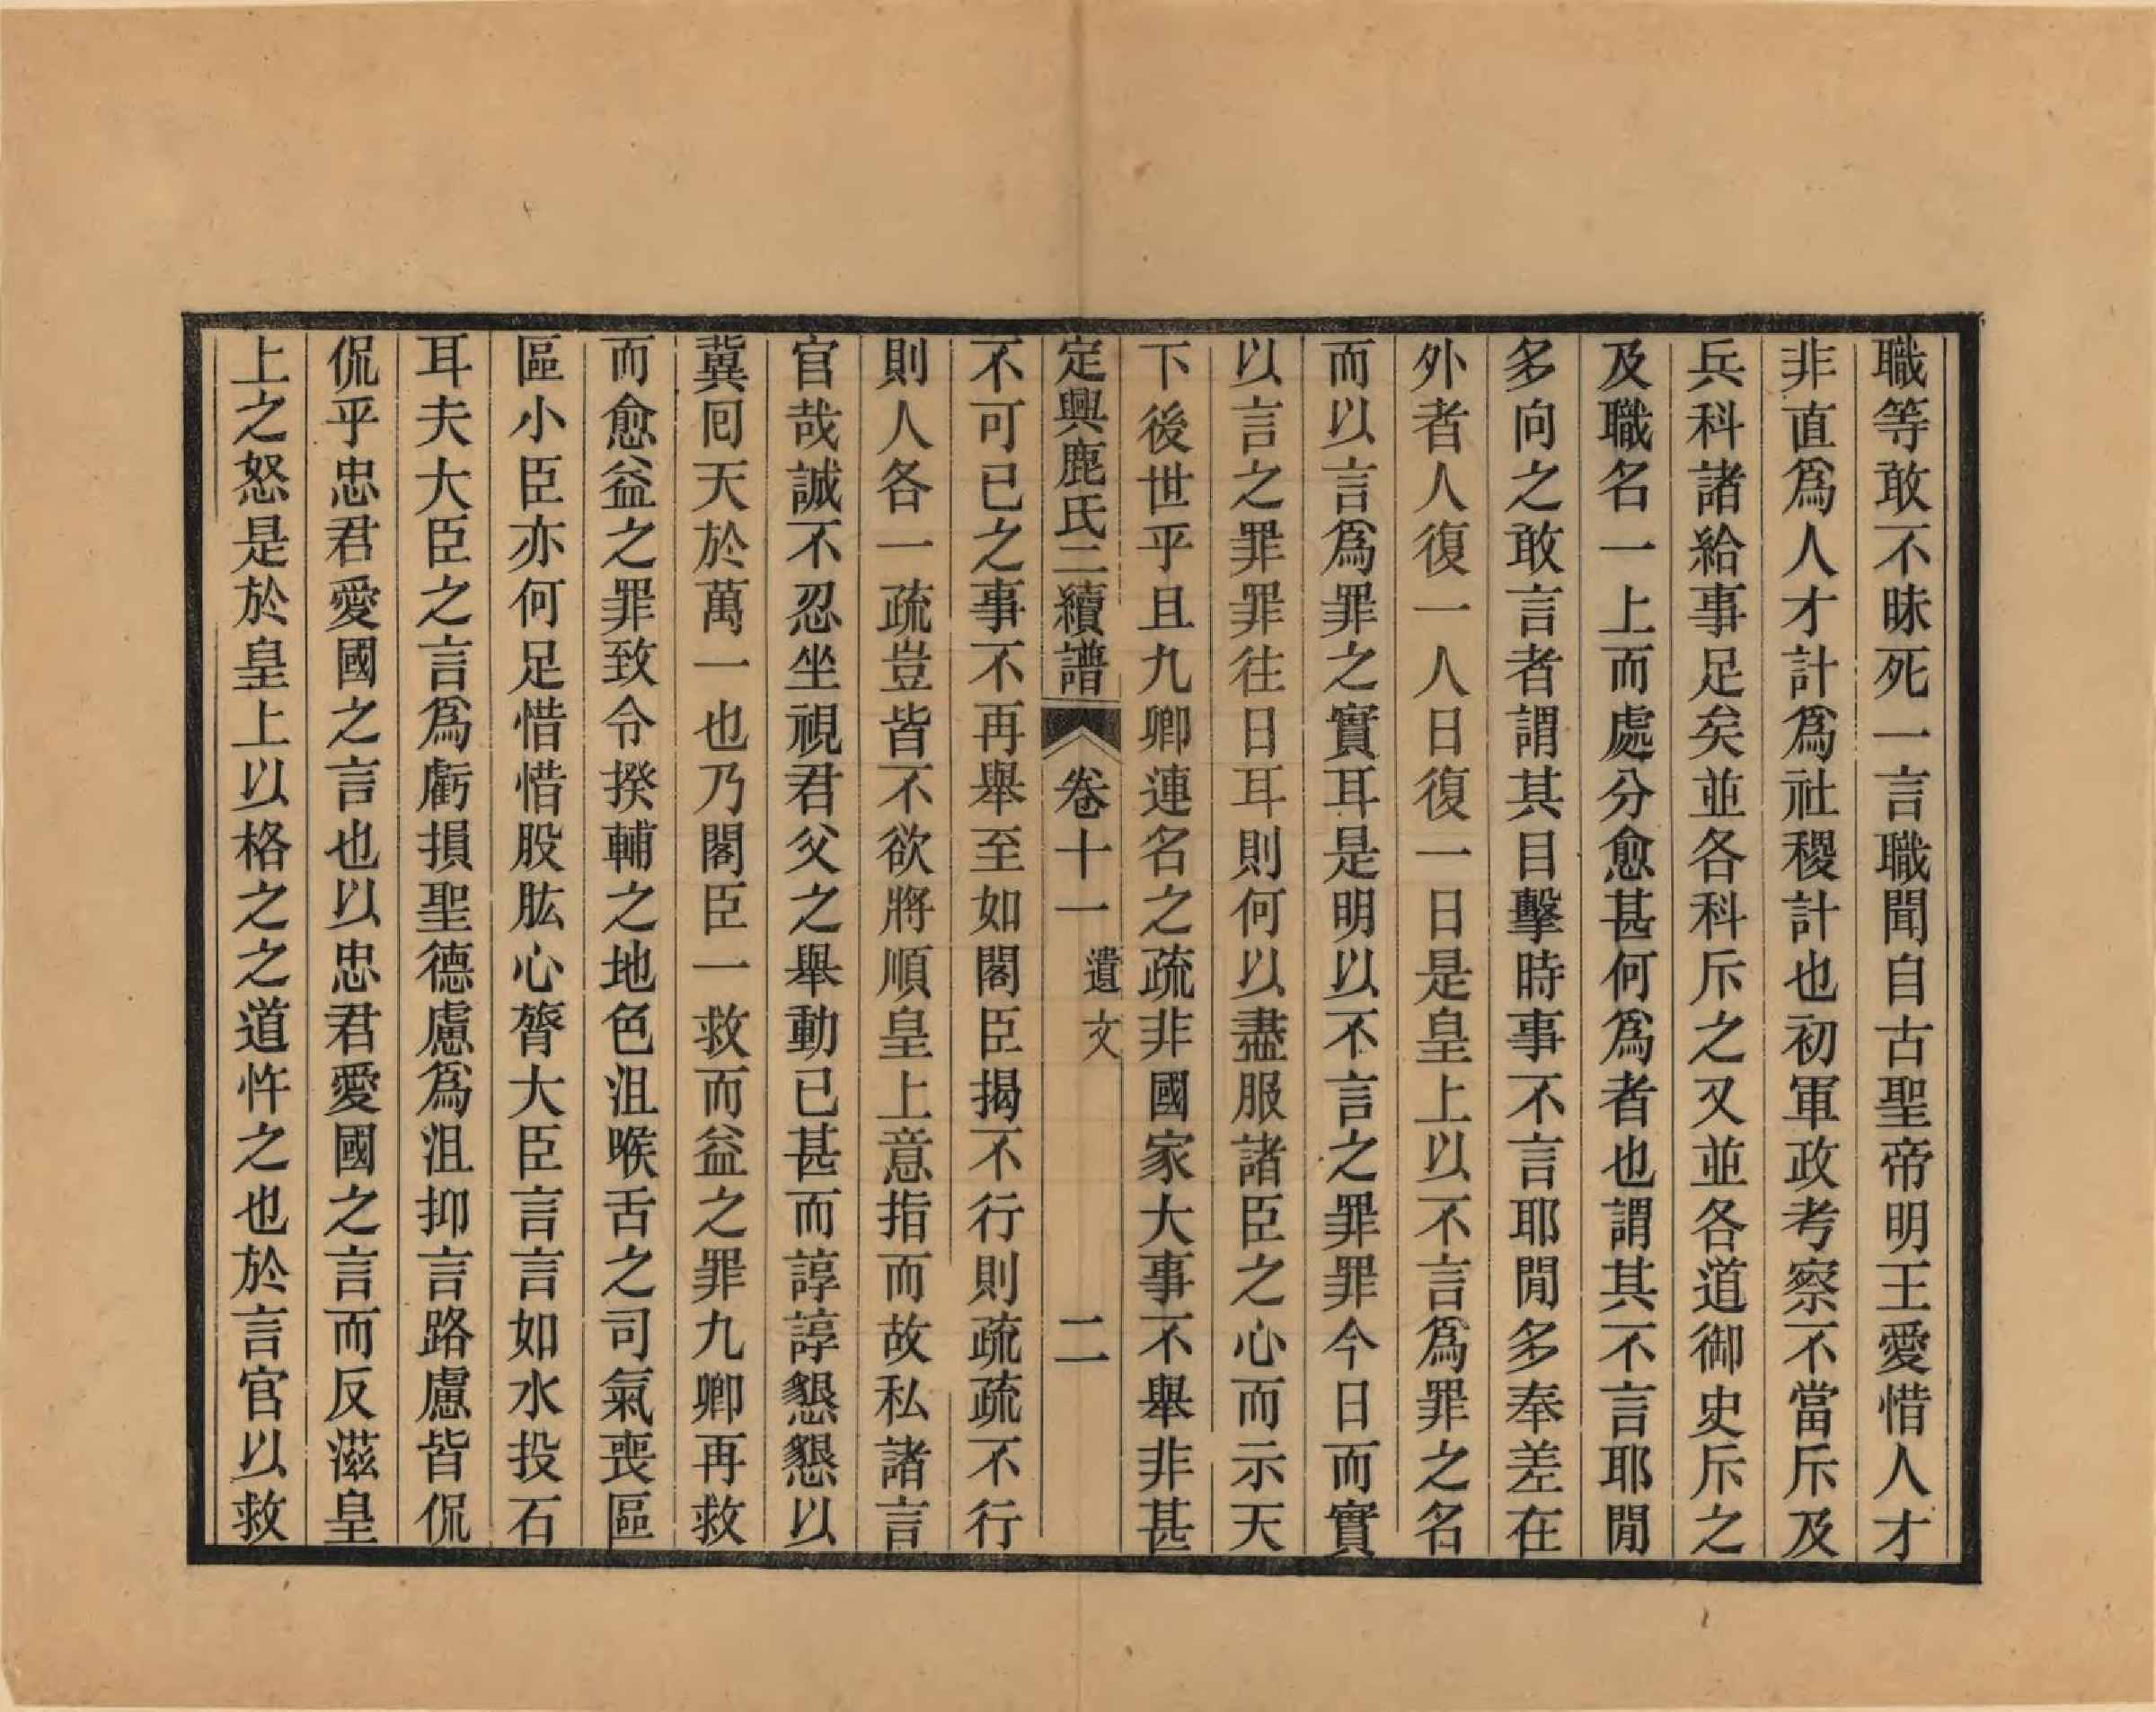 職等敢不昧死一言職聞自古聖帝明王愛惜人才
非直爲人才計爲社稷計也初軍政考察不當斥及
兵科諸給事足矣並各科斥之又並各道御史斥之
及職名一上而處分愈甚何爲者也謂其不言耶閒
多向之敢言者謂其目擊時事不言耶閒多奉差在
外者人復一人日復一日是皇上以不言爲罪之名
而以言爲罪之實耳是明以不言之罪罪今日而實
以言之罪罪往日耳則何以盡服諸臣之心而示天
下後世乎且九卿連名之疏非國家大事不舉非甚
定興鹿氏二續譜 卷十一 遺文 二
不可已之事不再舉至如閣臣揭不行則疏疏不行
則人各一疏豈皆不欲將順皇上意指而故私諸言
官哉誠不忍坐視君父之舉動已甚而諄諄懇懇以
冀囘天於萬一也乃閣臣一救而益之罪九卿再救
而愈益之罪致令揆輔之地色沮喉舌之司氣喪區
區小臣亦何足惜惜股肱心膂大臣言言如水投石
耳夫大臣之言爲虧損聖德慮爲沮抑言路慮皆侃
侃乎忠君愛國之言也以忠君愛國之言而反滋皇
上之怒是於皇上以格之之道忤之也於言官以救